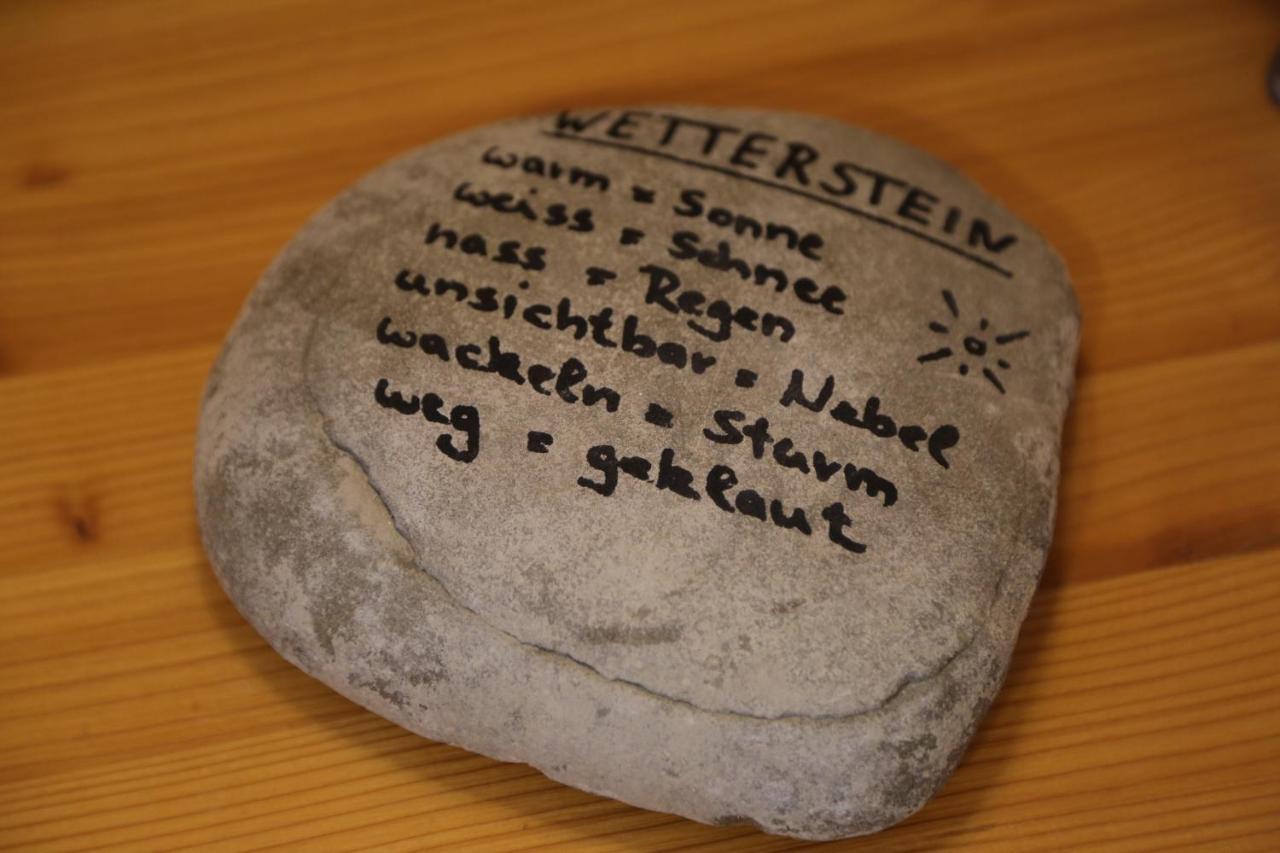 WETTERSTEIN
warm = Sonne
weiss = Schnee
nass = Regen
unsichtbar = Nebel
wackeln = Sturm
weg = geklaut